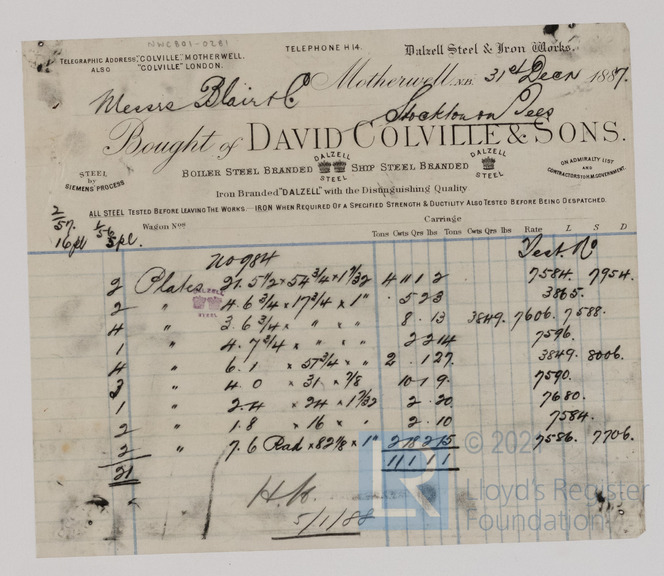 NWCB01-0281
TELEPHONE No 14.
Dalzell Steel & Iron Works.
TELEGRAPHIC ADDRESS, "COLVILLE", MOTHERWELL.
ALSO "COLVILLE" LONDON.
Motherwell, N.B. 31st Decr 1887.
Messrs Blair & Co
Stockton on Tees
Bought of DAVID COLVILLE & SONS.
STEEL by SIEMENS' PROCESS
BOILER STEEL BRANDED DALZELL STEEL SHIP STEEL BRANDED DALZELL STEEL
ON ADMIRALTY LIST AND CONTRACTORS FOR H.M. GOVERNMENT.
Iron Branded "DALZELL" with the Distinguishing Quality
ALL STEEL TESTED BEFORE LEAVING THE WORKS.— IRON WHEN REQUIRED OF A SPECIFIED STRENGTH & DUCTILITY ALSO TESTED BEFORE BEING DESPATCHED.
2/57. 1/56
16 pl 5 pl.
Wagon Nos
Carriage
Tons Cwts Qrs lbs Tons Cwts Qrs lbs Rate L S D
No 984 Test No
2 Plates 21. 5 1/2 x 54 3/4 x 1 7/32 4 11 1 2 7584. 7954.
DALZELL STEEL
2 " 4. 6 3/4 x 17 3/4 x 1" . 5 2 3 3865.
4 " 3. 6 3/4 x " x " 8 . 13 3849. 7606. 7588.
1 " 4. 7 3/4 x " x " 2 2 14 7596.
4 " 6. 1 x 57 3/4 x " 2 . 1 27. 3849. 8006.
3 " 4. 0 x 31 x 7/8 10 1 9. 7590.
1 " 2. 4 x 24 x 1 7/32 2 . 20. 7680.
2 " 1. 8 x 16 x " 2 . 10 7584.
2 " 7. 6 Rad x 82 1/8 x 1" 2 18 2 15 7586. 7706.
21 11 1 1 1
5/1/88
LR © 2021
Lloyd's Register
Foundation